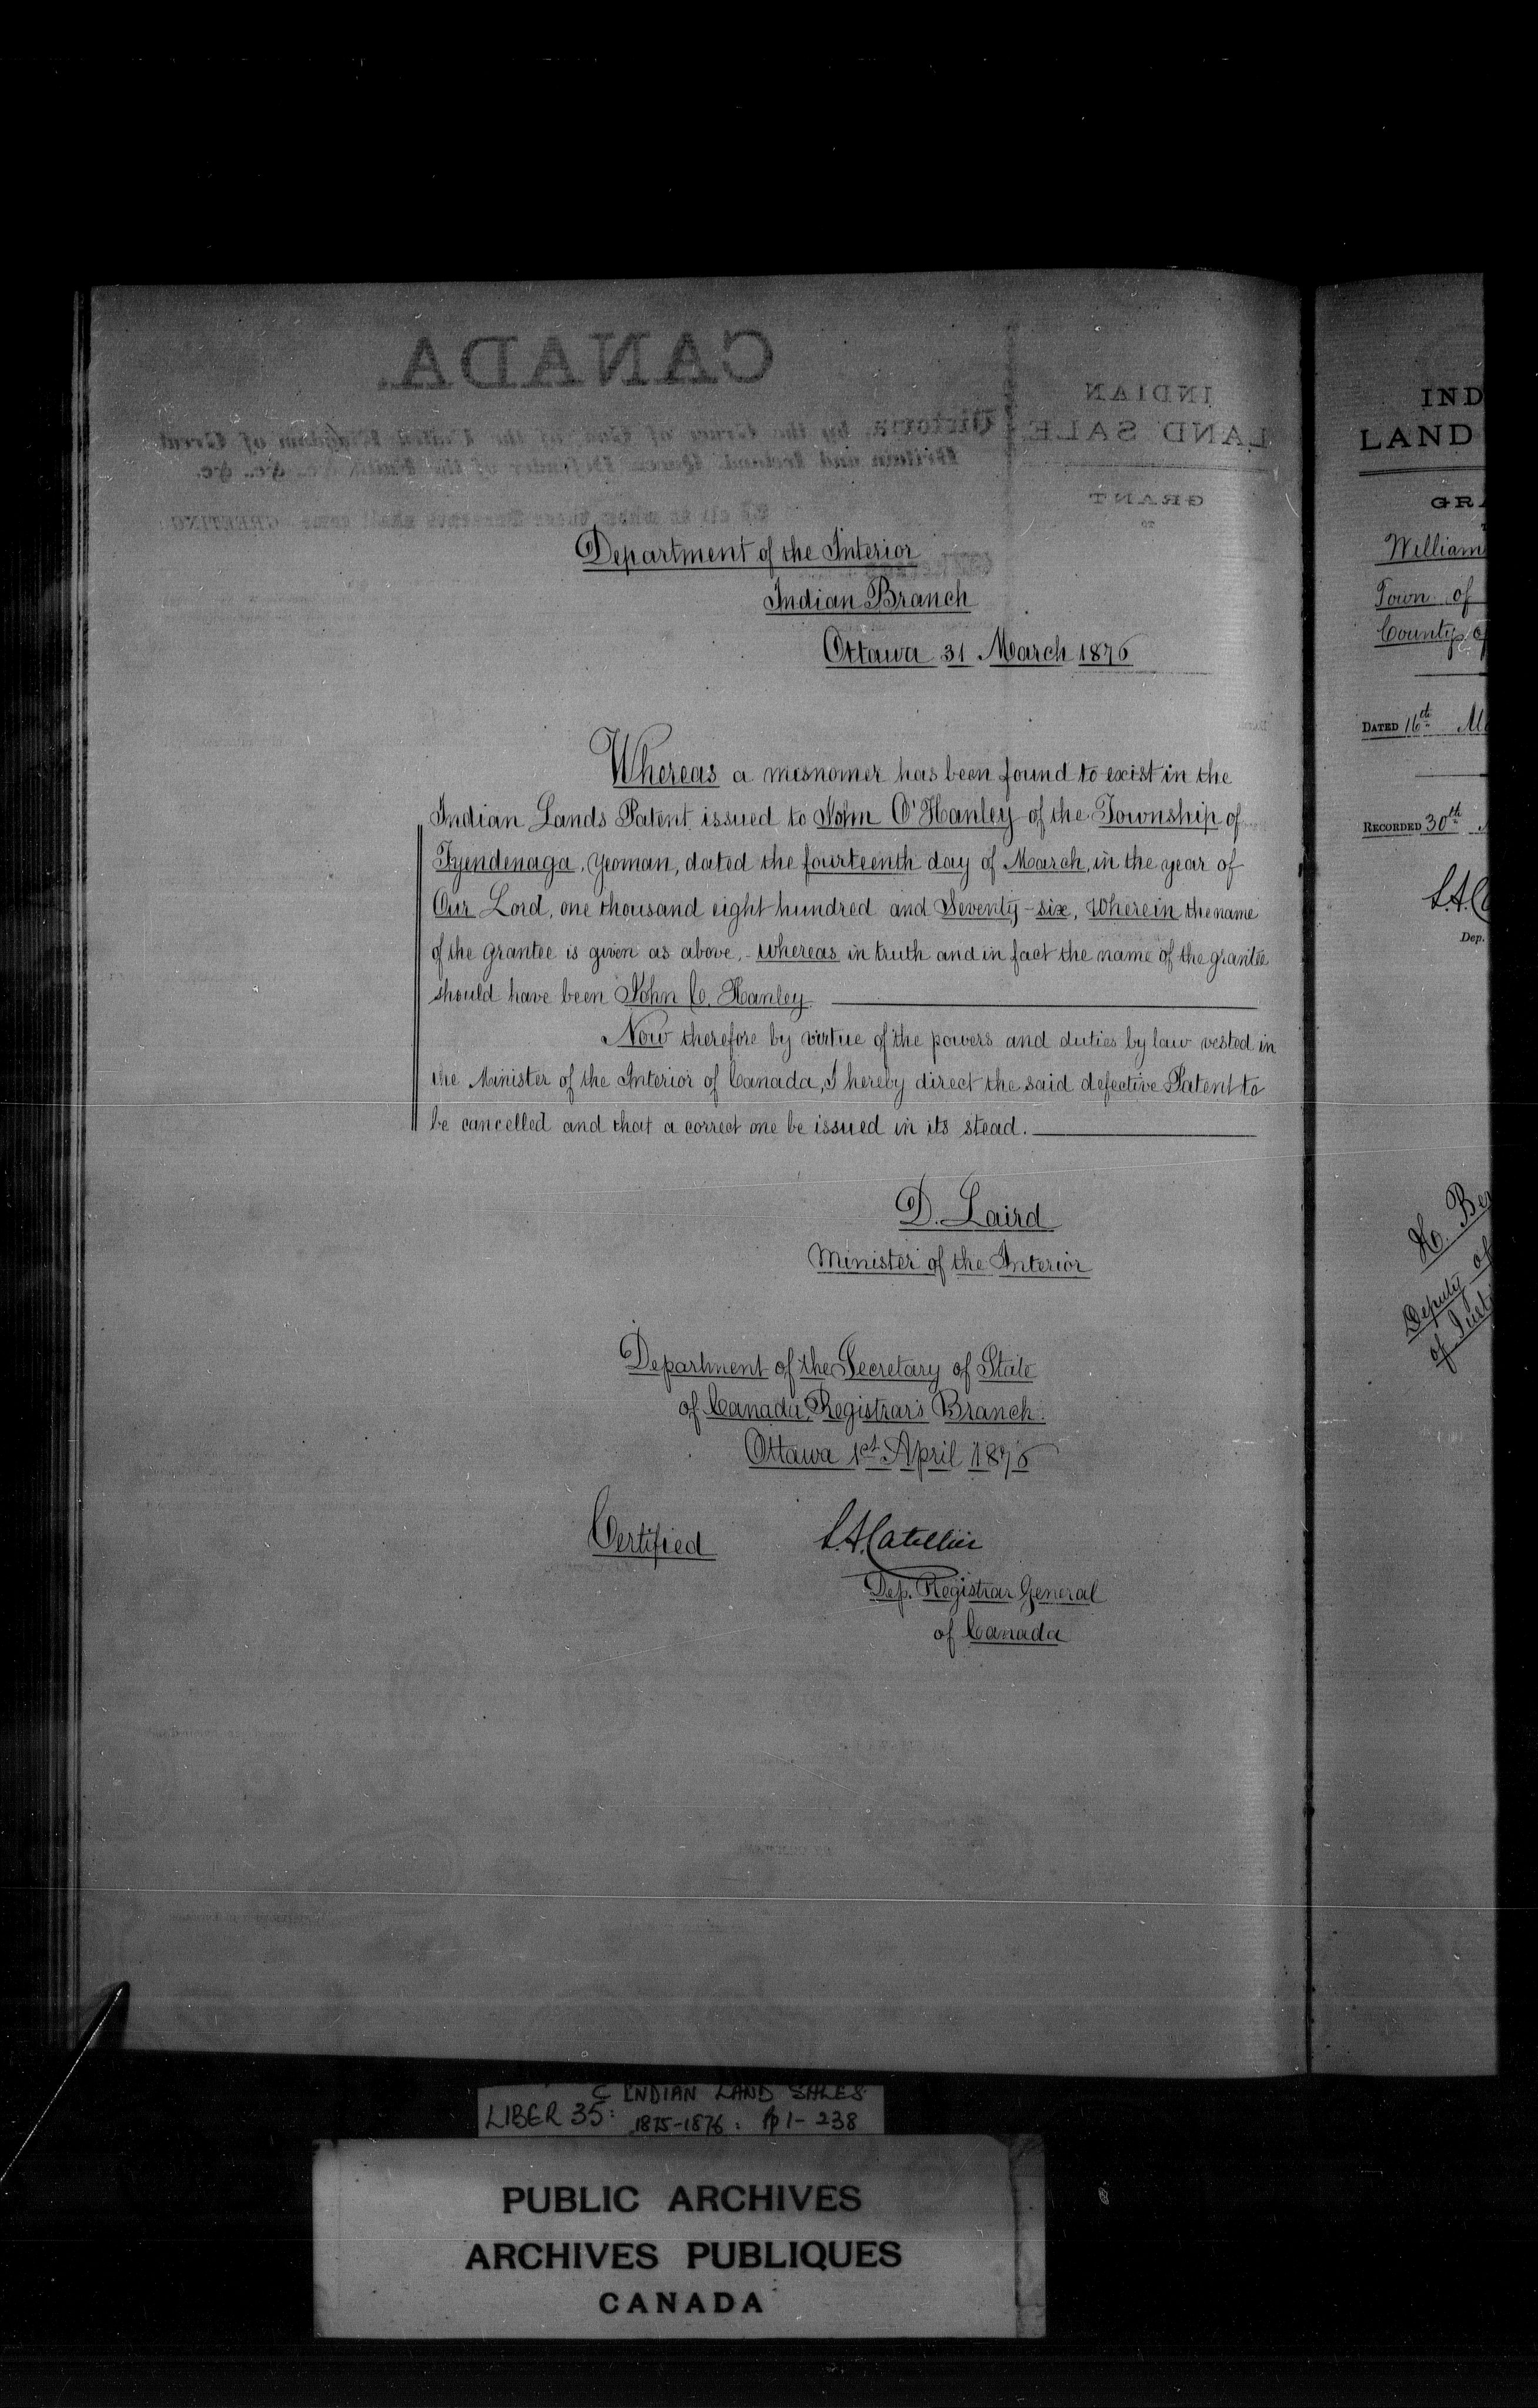 Department of the Interior
Indian Branch
Ottawa 31 March 1876
Whereas a misnomer has been found to exist in the
Indian Lands Patent issued to John O'Hanley of the Township of
Tyendenaga, Yeoman, dated the fourteenth day of March, in the year of
Our Lord, one thousand eight hundred and Seventy-six, Wherein the name
of the grantee is given as above, - whereas in truth and in fact the name of the grantee
should have been John C. Hanley
Now therefore by virtue of the powers and duties by law vested in
the Minister of the Interior of Canada, I hereby direct the said defective Patent to
be cancelled and that a correct one be issued in its stead.
D. Laird
Minister of the Interior
Department of the Secretary of State
of Canada, Registrar's Branch.
Ottawa 1st April 1876
Certified
L.A. Catellier
Dep. Registrar General
of Canada
CANADA.
Victoria, by the Grace of God, of the United Kingdom of Great
Britain and Ireland, Queen, Defender of the Faith, &c. &c. &c.
To all to whom these Presents shall come GREETING:
INDIAN
LAND SALE
GRANT
TO
IND
LAND
GRA
William
Town of
County of
DATED 16th Ma
RECORDED 30th
L.A. C
Dep.
H. Ber
Deputy of
of Just
C INDIAN LAND SALES
LIBER 35: 1875-1876: pp 1-238
PUBLIC ARCHIVES
ARCHIVES PUBLIQUES
CANADA